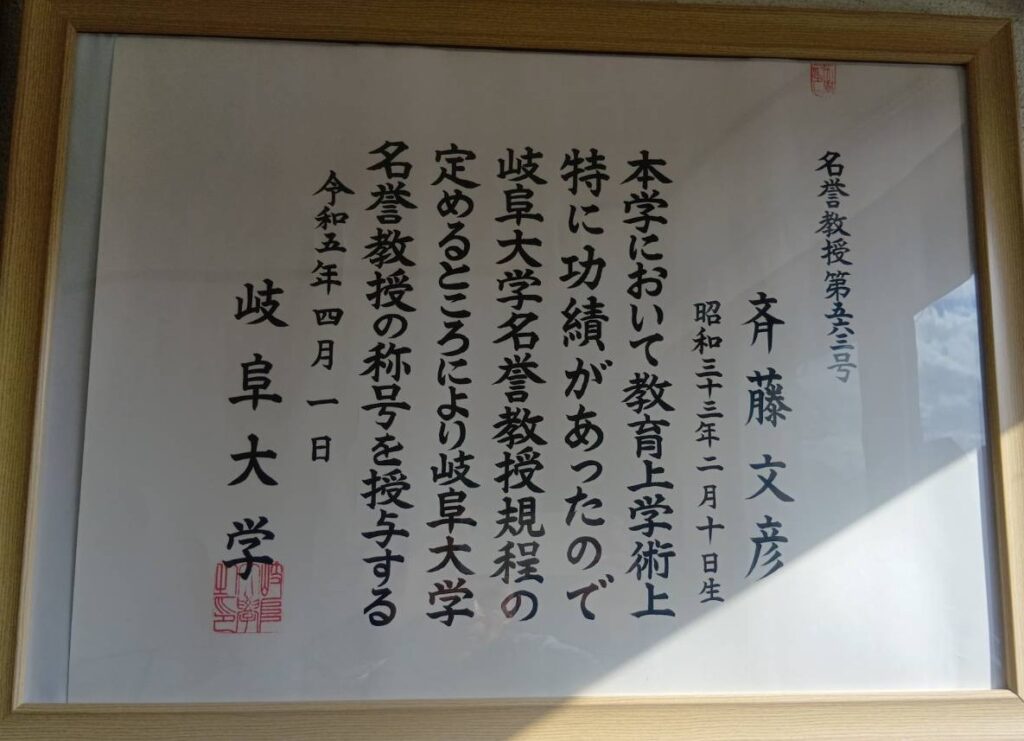 名誉教授第五六三号
斉藤文彦
昭和三十三年二月十日生
本学において教育上学術上
特に功績があったので
岐阜大学名誉教授規程の
定めるところにより岐阜大学
名誉教授の称号を授与する
令和五年四月一日
岐阜大学